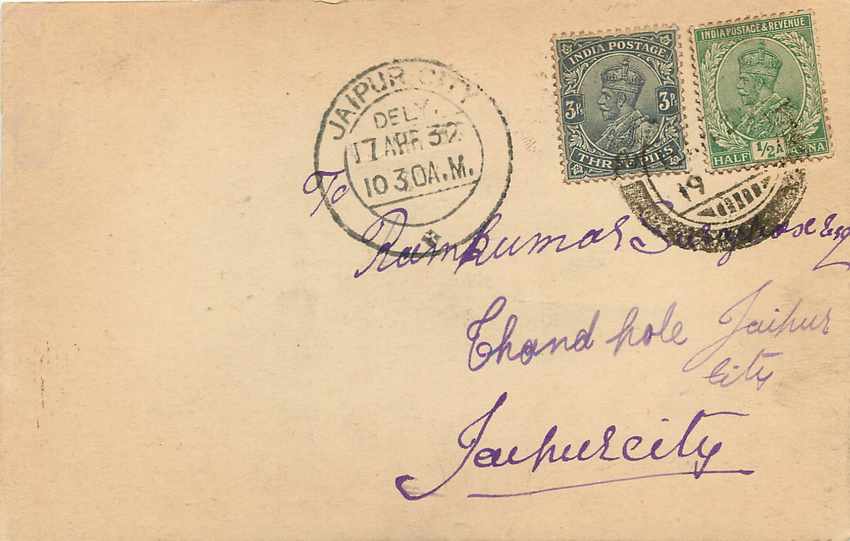 INDIA POSTAGE
3P. 3P.
THREE PIES
INDIA POSTAGE & REVENUE
HALF 1/2A ANNA
JAIPUR CITY
DELY.
17 APR 32
10 30 A.M.
19
To
Ramkumar Esq
Chand pole Jaipur
City
Jaipur city